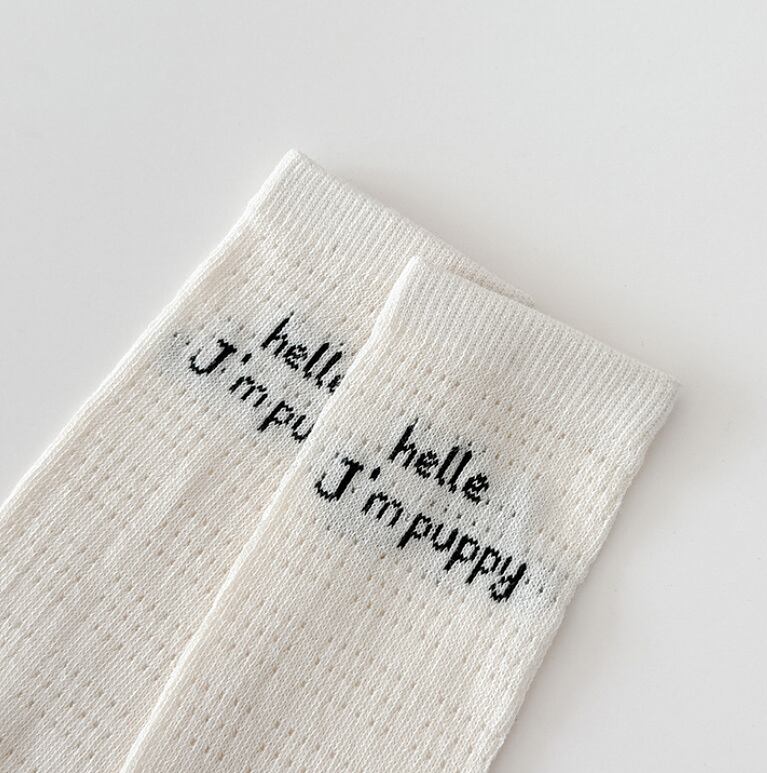 hell
J'm pu
helle
J'm puppy